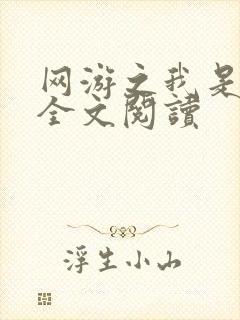 网游之我是
全文閱讀
浮生小山